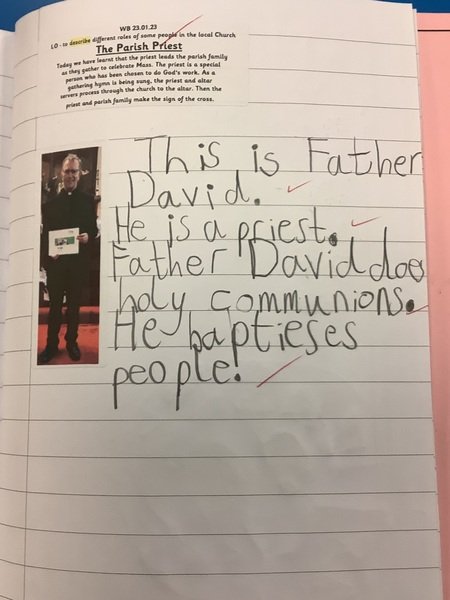 WB 23.01.23
LO - to describe different roles of some people in the local Church
The Parish Priest
Today we have learnt that the priest leads the parish family
as they gather to celebrate Mass. The priest is a special
person who has been chosen to do God's work. As a
gathering hymn is being sung, the priest and altar
servers process through the church to the altar. Then the
priest and parish family make the sign of the cross.
This is Father
David.
He is a priest.
Father David does
holy communions.
He baptieses
people.